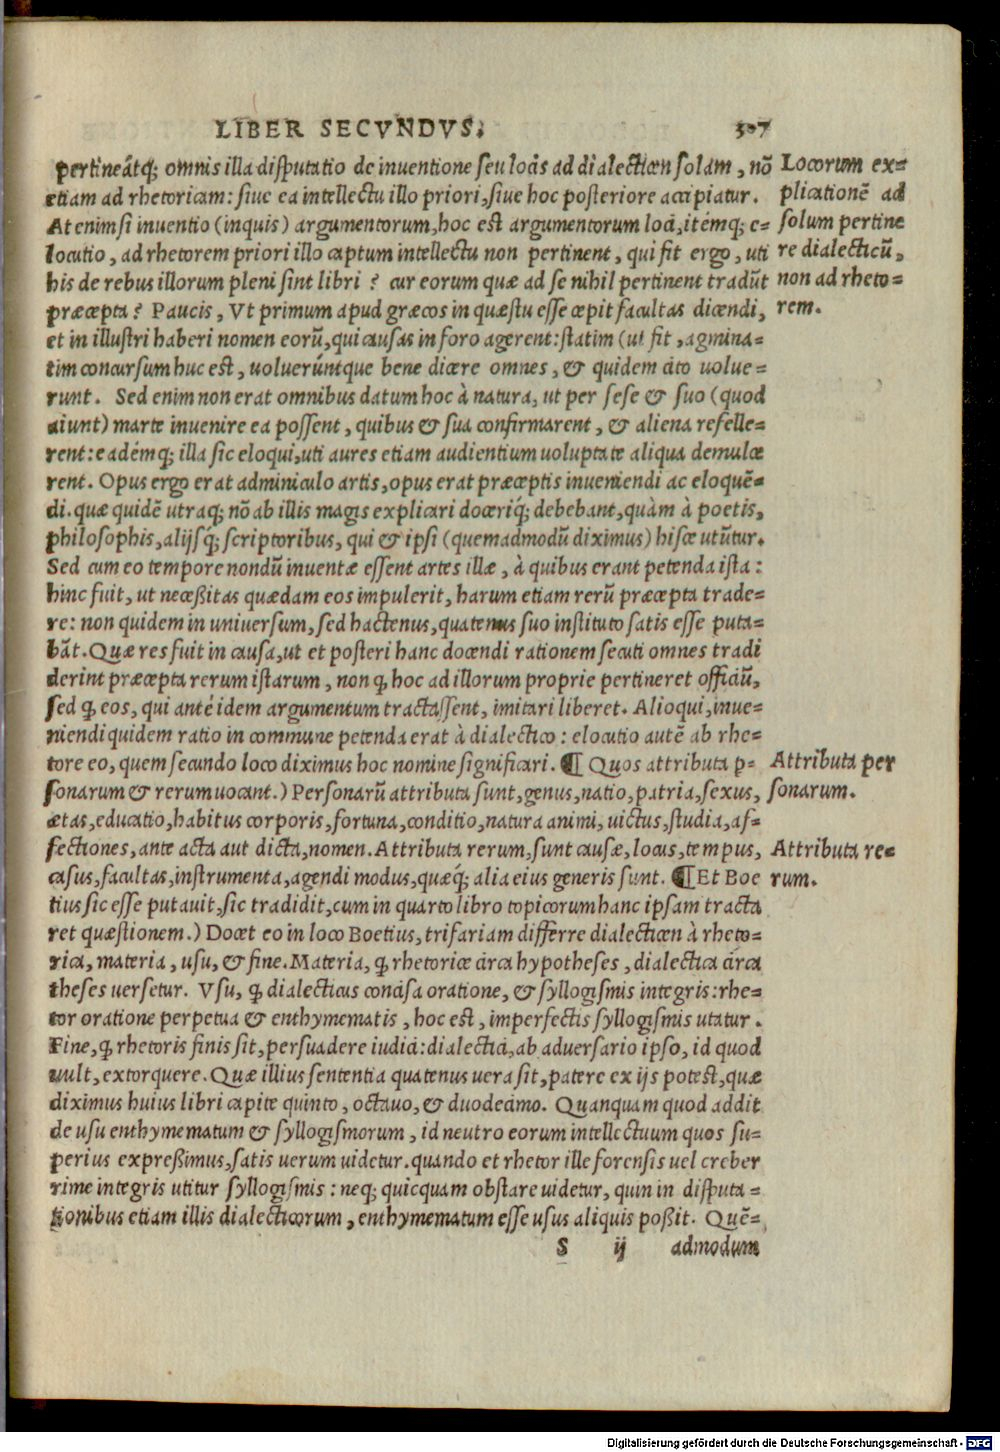 LIBER SECVNDVS. 307
pertineãtq; omnis illa disputatio de inuentione seu locis ad dialecticen solam, nõ
etiam ad rhetoricam: siue ea intellectu illo priori, siue hoc posteriore accipiatur.
At enim si inuentio (inquis) argumentorum, hoc est argumentorum loci, itémq; e=
locutio, ad rhetorem priori illo captum intellectu non pertinent, qui fit ergo, uti
his de rebus illorum pleni sint libri? cur eorum quæ ad se nihil pertinent tradũt
præcepta? Paucis, Vt primum apud græcos in quæstu esse cœpit facultas dicendi,
et in illustri haberi nomen eorũ, qui causas in foro agerent: statim (ut fit, agmina=
tim concursum huc est, uoluerúntque bene dicere omnes, & quidem cito uolue=
runt. Sed enim non erat omnibus datum hoc à natura, ut per sese & suo (quod
aiunt) marte inuenire ea possent, quibus & sua confirmarent, & aliena refelle=
rent: eadémq; illa sic eloqui, uti aures etiam audientium uoluptate aliqua demulce
rent. Opus ergo erat adminiculo artis, opus erat præceptis inueniendi ac eloquẽ=
di. quæ quidẽ utraq; nõ ab illis magis explicari doceriq́; debebant, quàm à poetis,
philosophis, alijsq́; scriptoribus, qui & ipsi (quemadmodũ diximus) hisce utũtur.
Sed cum eo tempore nondũ inuentæ essent artes illæ, à quibus erant petenda ista:
hinc fuit, ut necessitas quædam eos impulerit, harum etiam rerũ præcepta trade=
re: non quidem in uniuersum, sed hactenus, quatenus suo instituto satis esse puta=
bãt. Quæ res fuit in causa, ut et posteri hanc docendi rationem secuti omnes tradi
derint præcepta rerum istarum, non q̃ hoc ad illorum proprie pertineret officiũ,
sed q̃ eos, qui anté idem argumentum tractassent, imitari liberet. Alioqui, inue=
niendi quidem ratio in commune petenda erat à dialectico: elocutio autẽ ab rhe=
tore eo, quem secundo loco diximus hoc nomine significari. ¶ Quos attributa p=
sonarum & rerum uocant.) Personarũ attributa sunt, genus, natio, patria, sexus,
ætas, educatio, habitus corporis, fortuna, conditio, natura animi, uictus, studia, af=
fectiones, ante acta aut dicta, nomen. Attributa rerum, sunt causæ, locus, tempus,
casus, facultas, instrumenta, agendi modus, quæq́; alia eius generis sunt. ¶ Et Boe
tius sic esse putauit, sic tradidit, cum in quarto libro topicorum hanc ipsam tracta
ret quæstionem.) Docet eo in loco Boetius, trifariam differre dialecticen à rheto=
rica, materia, usu, & fine. Materia, q̃ rhetorice circa hypotheses, dialectica circa
theses uersetur. Vsu, q̃ dialecticus concisa oratione, & syllogismis integris: rhe=
tor oratione perpetua & enthymematis, hoc est, imperfectis syllogismis utatur.
Fine, q̃ rhetoris finis sit, persuadere iudici: dialectici, ab aduersario ipso, id quod
uult, extorquere. Quæ illius sententia quatenus uera sit, patere ex ijs potest, quæ
diximus huius libri capite quinto, octauo, & duodecimo. Quanquam quod addit
de usu enthymematum & syllogismorum, id neutro eorum intellectuum quos su=
perius expressimus, satis uerum uidetur. quando et rhetor ille forensis uel creber
rime integris utitur syllogismis: neq; quicquam obstare uidetur, quin in disputa=
tionibus etiam illis dialecticorum, enthymematum esse usus aliquis possit. Quẽ=
S ij admodum
Locorum ex=
plicationẽ ad
solum pertine
re dialecticũ,
non ad rheto=
rem.
Attributa per
sonarum.
Attributa re=
rum.
Digitalisierung gefördert durch die Deutsche Forschungsgemeinschaft - DFG